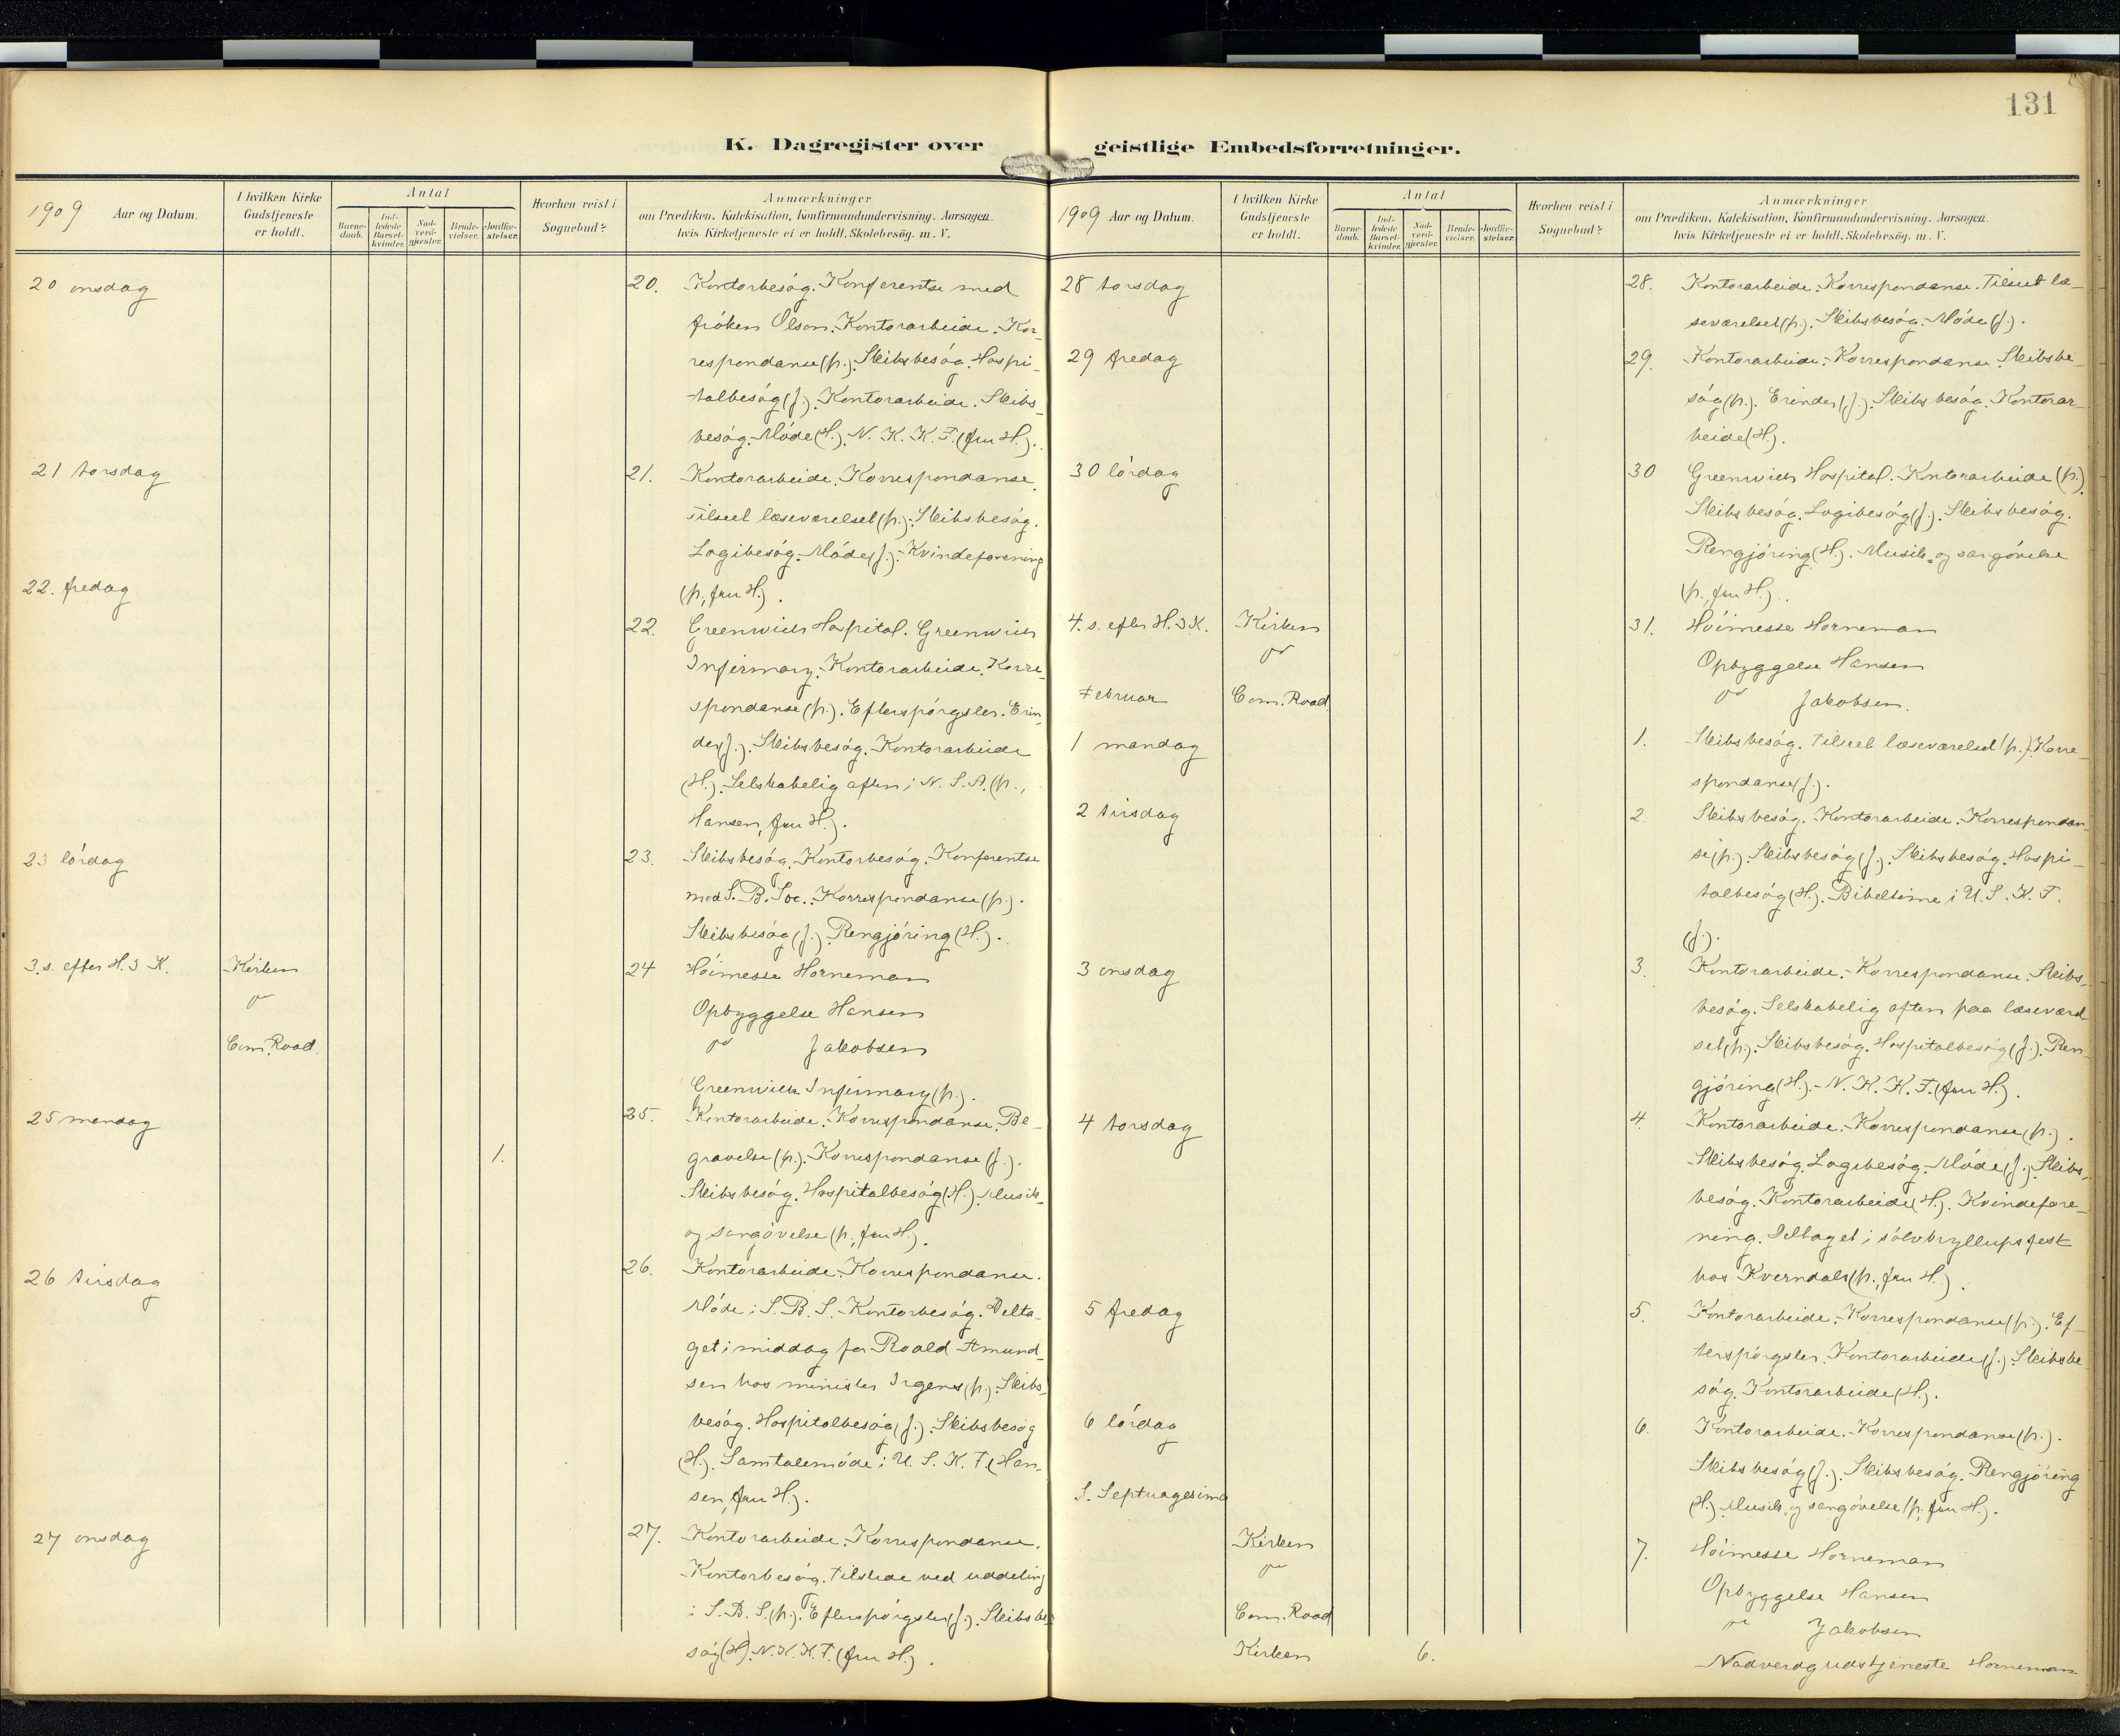 131
K. Dagregister over geistlige Embedsforretninger.
1909 Aar og Datum.
I hvilken Kirke Gudstjeneste er holdt.
Antal
Barnedaab.
Indledede Barselkvinder.
Nadverdgjæster.
Brudevielser.
Jordfæstelser.
Hvorhen reist i Sognebud?
Anmærkninger
om Prædiken, Katekisation, Konfirmandundervisning, Aarsagen
hvis Kirketjeneste ei er holdt, Skolebesög. m. V.
20 onsdag
20. Kontorbesög. Konferentse med
fröken Olson. Kontorarbeide. Kor-
respondanse (p.). Skibsbesög. Hospi-
talbesög (J.). Kontorarbeide. Skibs-
besög. Möde (H.). N. K. K. F. (fru H.).
21 torsdag
21. Kontorarbeide. Korrespondanse.
Tilseet læseværelset (p.). Skibsbesög.
Logibesög. Möde (J.). Kvindeforening
(p., fru H.).
22. fredag
22. Greenwich Hospital. Greenwich
Infirmary. Kontorarbeide. Korre-
spondanse (p.). Efterspörgsler. Erin-
der (J.). Skibsbesög. Kontorarbeide
(H.). Selskabelig aften i N. S. A. (p.,
Hansen, fru H.).
23 lördag
23. Skibsbesög. Kontorbesög. Konferentse
med S. B. Soc. Korrespondanse (p.).
Skibsbesög (J.). Rengjöring (H.).
3. s. efter H. 3 K. Kirken
24 Höimesse Horneman
Opbyggelse Hansen
Com. Road.
Jakobsen
Greenwich Infirmary (p.).
25 mandag
25. Kontorarbeide. Korrespondanse. Be-
1. gravelse (p.). Korrespondanse (J.).
Skibsbesög. Hospitalbesög (H.). Musik-
og sangövelse (p., fru H.).
26 tirsdag
26. Kontorarbeide. Korrespondanse.
Möde i S. B. S. Kontorbesög. Delta-
get i middag for Roald Amund-
sen hos minister Irgens (p.). Skibs-
besög. Hospitalbesög (J.). Skibsbesög
(H.). Samtalemöde i U. S. K. F. (Han-
sen, fru H.).
27 onsdag
27. Kontorarbeide. Korrespondanse.
Kontorbesög. Tilstede ved uddeling
i S. B. S. (p.). Efterspörgsler (J.). Skibsbe-
sög (H). N. K. K. F. (fru H.).
1909 Aar og Datum.
I hvilken Kirke Gudstjeneste er holdt.
Antal
Barnedaab.
Indledede Barselkvinder.
Nadverdgjæster.
Brudevielser.
Jordfæstelser.
Hvorhen reist i Sognebud?
Anmærkninger
om Prædiken, Katekisation, Konfirmandundervisning, Aarsagen
hvis Kirketjeneste ei er holdt, Skolebesög. m. V.
28 torsdag
28. Kontorarbeide. Korrespondanse. Tilseet læ-
seværelset (p.). Skibsbesög. Möde (J.).
29 fredag
29. Kontorarbeide. Korrespondanse. Skibsbe-
sög (p.). Erinder (J.). Skibsbesög. Kontorar-
beide (H.).
30 lördag
30 Greenwich Hospital. Kontorarbeide (p.).
Skibsbesög. Logibesög (J.). Skibsbesög.
Rengjöring (H.). Musik- og sangövelse
(p., fru H.).
4. s. efter H. 3 K. Kirken
31. Höimesse Horneman
Opbyggelse Hansen
Februar Com. Road
Jakobsen.
1 mandag
1. Skibsbesög. Tilseet læseværelset (p.). Korre-
spondanse (J.).
2 tirsdag
2. Skibsbesög. Kontorarbeide. Korrespondan-
se (p.). Skibsbesög (J.). Skibsbesög. Hospi-
talbesög (H.). Bibeltime i U. S. K. F.
(J.).
3 onsdag
3. Kontorarbeide. Korrespondanse. Skibs-
besög. Selskabelig aften paa læseværel-
set (p.). Skibsbesög. Hospitalbesög (J.). Ren-
gjöring (H.). N. K. K. F. (fru H.).
4 torsdag
4. Kontorarbeide. Korrespondanse (p.).
Skibsbesög. Logibesög. Möde (J.). Skibs-
besög. Kontorarbeide (H.). Kvindefore-
ning. Deltaget i sölvbryllupsfest
hos Kverndals (p., fru H.).
5 fredag
5. Kontorarbeide. Korrespondanse (p.). Ef-
terspörgsler. Kontorarbeide (J.). Skibsbe-
sög. Kontorarbeide (H.).
6 lördag
6. Kontorarbeide. Korrespondanse (p.).
Skibsbesög (J.). Skibsbesög. Rengjöring
(H.). Musik- og sangövelse (p., fru H.).
S. Septuagesima
Kirken
7. Höimesse Horneman
Opbyggelse Hansen
Com. Road
Jakobsen
Kirken 6. Nadverdgudstjeneste Horneman